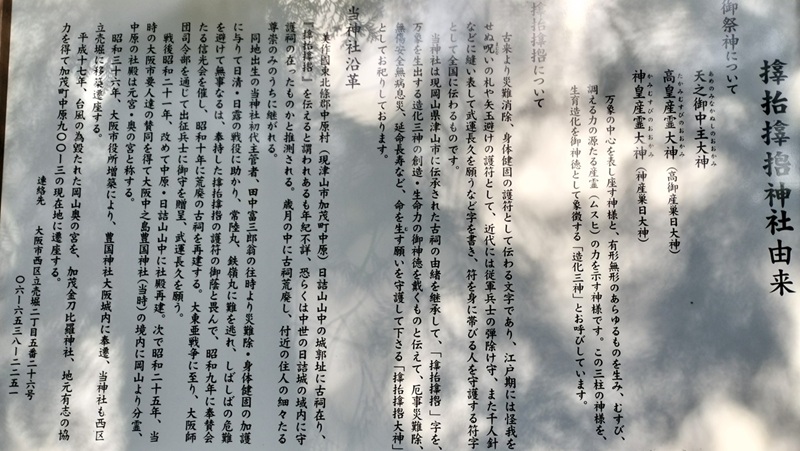 神社由来
御祭神について
天之御中主大神
あめのみなかぬしのおおかみ
高皇産霊大神（高御産巣日大神）
たかみむすびのおおかみ
神皇産霊大神（神産巣日大神）
かみむすびのおおかみ
万象の中心を表し座す神様と、有形無形のあらゆるものを生み、むすび、
調える力の源たる産霊（ムスヒ）の力を示す神様です。この三柱の神様を、
生育造化を御神徳として象徴する「造化三神」とお呼びしています。
について
古来より災難消除、身体健固の護符として伝わる文字であり、江戸期には怪我を
せぬ呪いの札や矢玉避けの護符として、近代には従軍兵士の弾除け守、また千人針
などに縫い表して武運長久を願うなど字を書き、符を身に帯びる人を守護する符字
として全国に伝わるものです。
当神社は現岡山県津山市に伝承された古祠の由緒を継承して、「」字を、
万象を生出する造化三神の創造・生命力の御神徳を戴くものと伝えて、厄事災難除、
無傷安全無病息災、延命長寿など、命を生す願いを守護して下さる「大神」
としてお祀りしております。
当神社沿革
美作國東北條郡中原村（現津山市加茂町中原）日詰山山中の城郭址に古祠在り、
『』を伝えると謂われあるも年紀不詳、恐らくは中世の日詰城の城内に守
護祠の在ったものかと推測される。歳月の中に古祠荒廃し、付近の住人の細々たる
尊崇のみのうちに継がれる。
同地出生の当神社初代主管者、田中富三郎翁の往時より災難除・身体健固の加護
に与りて日清・日露の戦役に助かり、常陸丸、鉄嶺丸に難を逃れ、しばしばの危難
を避けて無事なるは、奉持したの護符の御蔭と畏んで、昭和九年に奉賛会
たる信光会を催し、昭和十年に荒廃の古祠を再建する。大東亜戦争に至り、大阪師
団司令部を通して出征兵士に御守を贈呈、武運長久を願う。
戦後昭和二十一年、改めて中原・日詰山山中に社殿再建。次で昭和二十五年、当
時の大阪市要人達の賛同を得て大阪中之島豊国神社（当時）の境内に岡山より分霊、
中原の社殿は元宮・奥の宮と称する。
昭和三十六年、大阪市役所増築により、豊国神社大阪城内に奉遷、当神社も西区
立売堀に移築遷座する。
平成十七年、台風の為毀たれた岡山奥の宮を、加茂金刀比羅神社、地元有志の協
力を得て加茂町中原九〇一-三の現在地に遷座する。
連絡先
大阪市西区立売堀二丁目五番二十六号
〇六-六五三八-二二五一